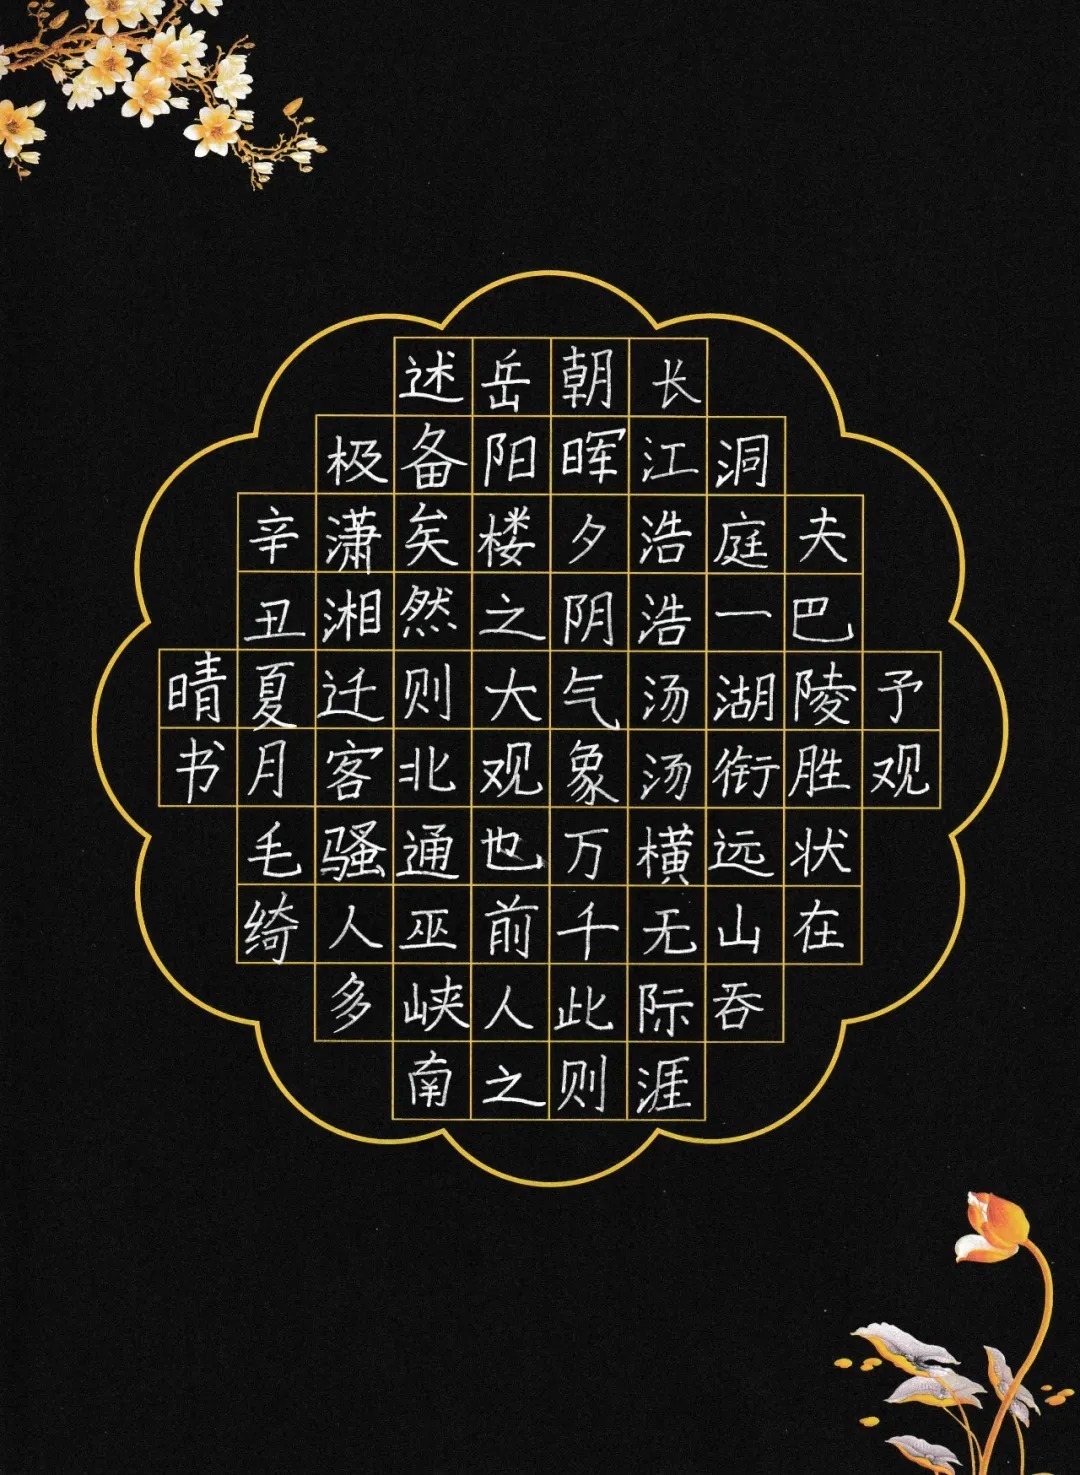 予观
夫巴陵胜状在
洞庭一湖衔远山吞
长江浩浩汤汤横无际涯
朝晖夕阴气象万千此则
岳阳楼之大观也前人之
述备矣然则北通巫峡南
极潇湘迁客骚人多
辛丑夏月毛绮
晴书